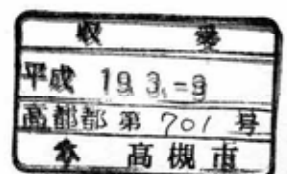 収 受
平成 19.3.-9
高都都 第 701 号
高槻市